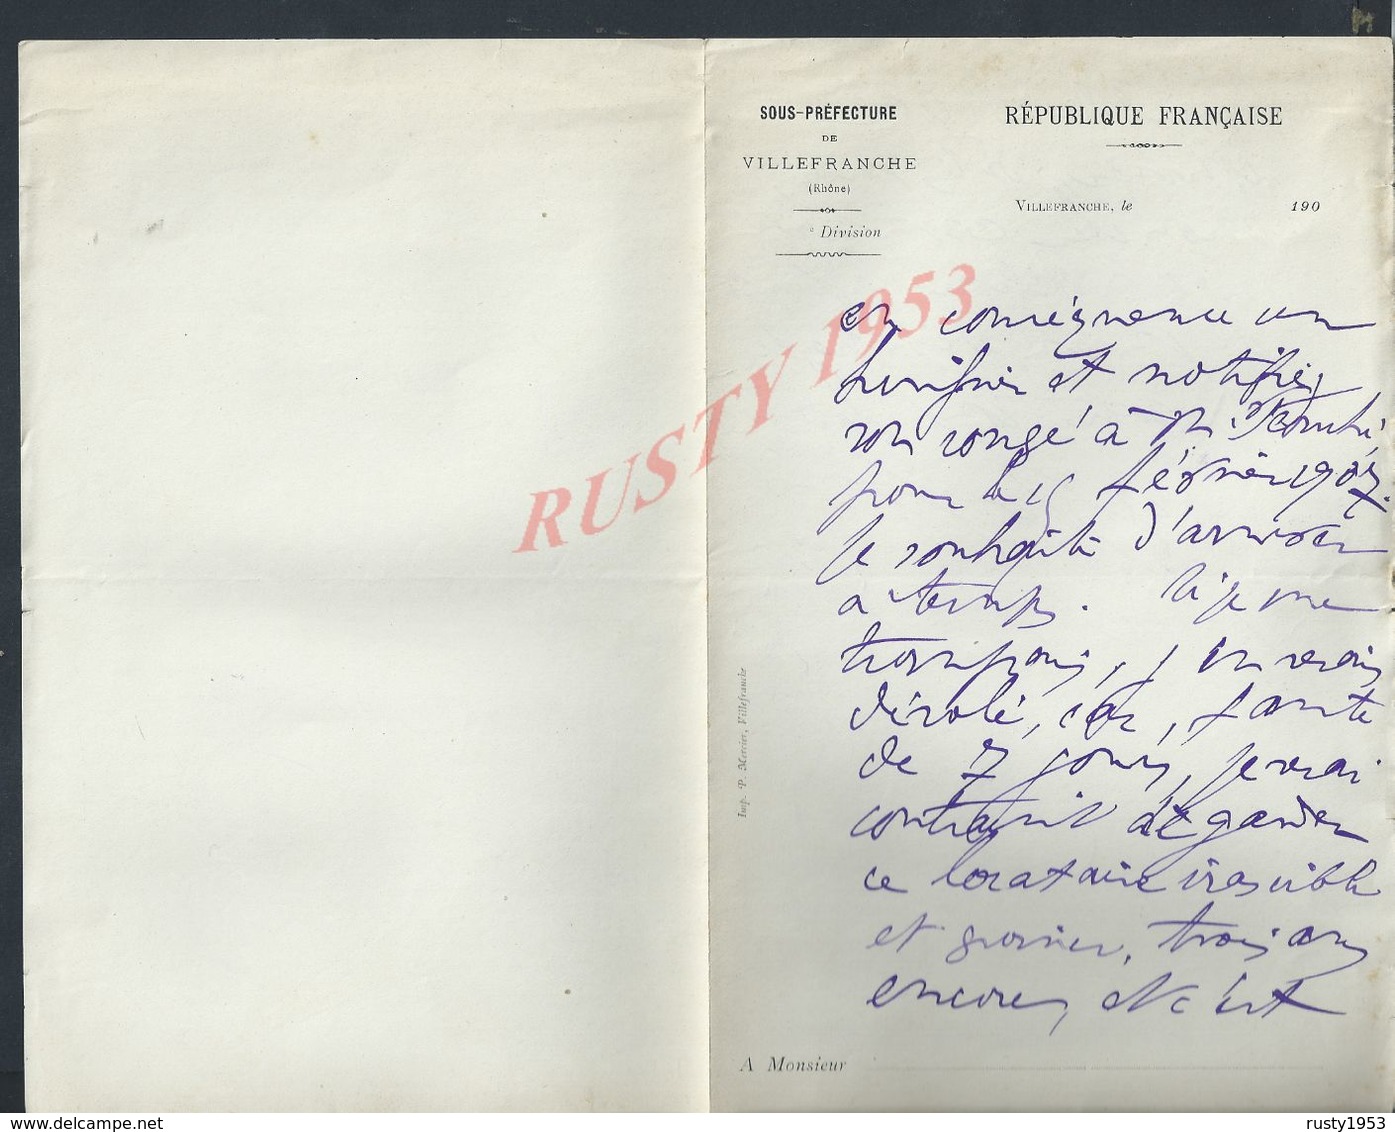 SOUS-PRÉFECTURE
DE
VILLEFRANCHE
(Rhône)
e Division
RÉPUBLIQUE FRANÇAISE
VILLEFRANCHE, le 190
RUSTY 1953
en conséquence
et notifier
son congé à M.
pour le 15 février 1907.
Je souhaite d'arriver
à temps. Si je me
trompais, j'en serais
désolé, car, faute
de 7 jours, je serai
contraint de garder
ce locataire irascible
et grossier, trois ans
encore, et c'est
Imp. P. Mercier, Villefranche
A Monsieur
www.delcampe.net
rusty1953